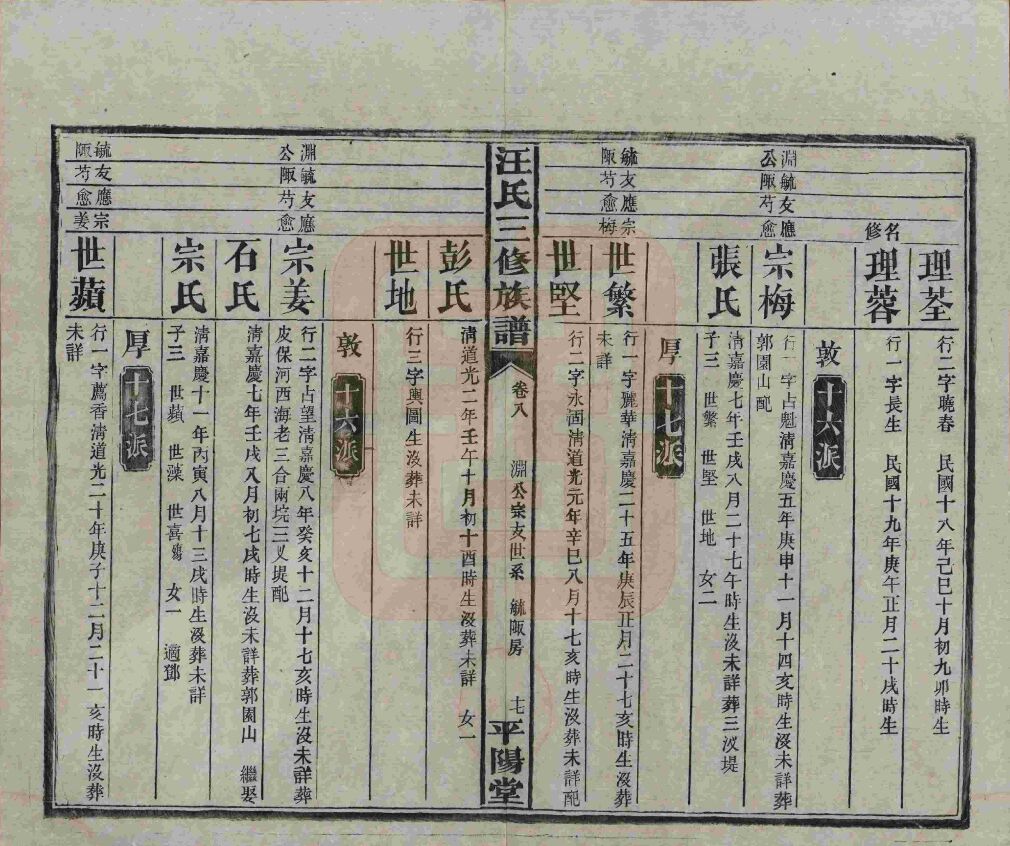 理荃
行二字曉春　民國十八年己巳十月初九卯時生
名修
理蓉
行一字長生　民國十九年庚午正月二十戌時生
敦
十六派
淵毓友應
公陬芍愈
宗梅
行一字占魁清嘉慶五年庚申十一月十四亥時生沒未詳葬
郭園山配
張氏
清嘉慶七年壬戌八月二十七午時生沒未詳葬三汊堤
子三　世繁　世堅　世地　女二
厚
十七派
毓友應宗
陬芍愈梅
世繁
行一字麗華清嘉慶二十五年庚辰正月二十七亥時生沒葬
未詳
世堅
行二字永固清道光元年辛巳八月十七亥時生沒葬未詳配
汪氏三修族譜
卷八
淵公宗支世系　毓陬房
十七
平陽堂
彭氏
清道光二年壬午十月初十酉時生沒葬未詳　女一
世地
行三字輿圖生沒葬未詳
敦
十六派
淵毓友應
公陬芍愈
宗姜
行二字占望清嘉慶八年癸亥十二月十七亥時生沒未詳葬
皮保河西海老三合兩垸三叉堤配
石氏
清嘉慶七年壬戌八月初七戌時生沒未詳葬郭園山　繼娶
宗氏
清嘉慶十一年丙寅八月十三戌時生沒葬未詳
子三　世蘋　世藻　世喜殤　女一　適鄧
厚
十七派
毓友應宗
陬芍愈姜
世蘋
行一字薦香清道光二十年庚子十二月二十一亥時生沒葬
未詳